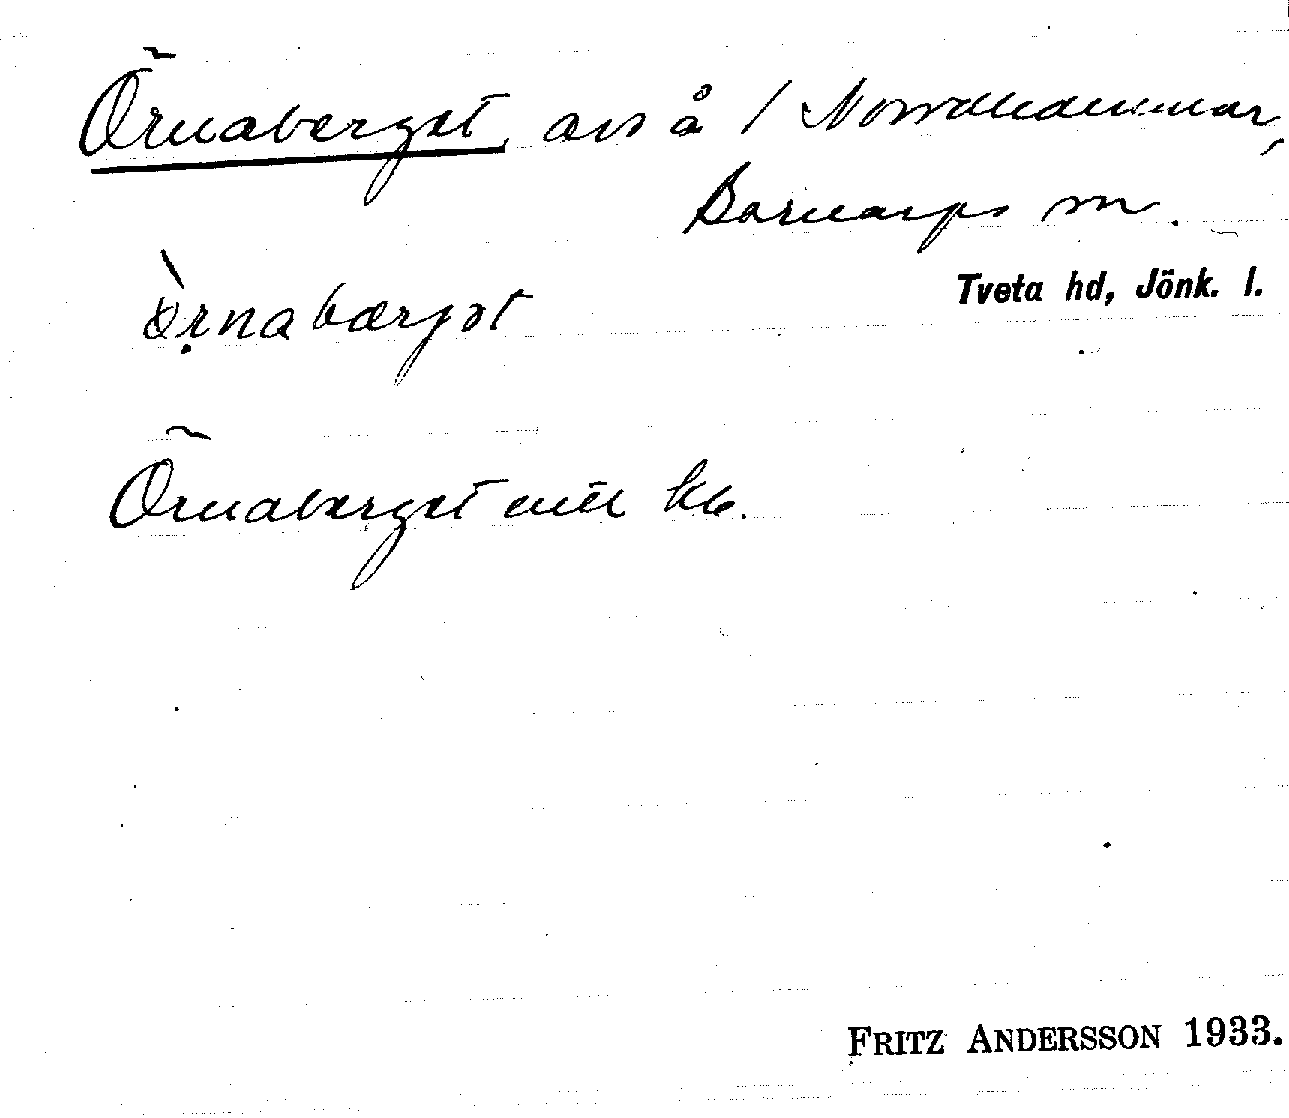 Örnaberget, avs å 1 Norrahammar,
Barnarps sn.
Tveta hd, Jönk. l.
ö̀rṇabærjət
Örnaberget enl kb.
FRITZ ANDERSSON 1933.